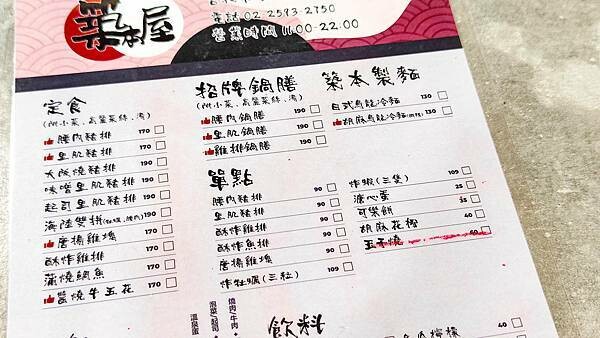 築本屋
電話 02-2593-2750
營業時間 11:00-22:00
定食
(附小菜、高麗菜絲、湯)
腰內豬排 170
里肌豬排 170
大阪燒豬排 190
味噌里肌豬排 190
起司里肌豬排 190
海陸雙拼 190
唐揚雞塊 170
酥炸雞排 170
蒲燒鯛魚 170
醬燒牛五花 170
招牌鍋膳
(附小菜、高麗菜絲、湯)
腰內鍋膳 190
里肌鍋膳 190
雞排鍋膳 190
築本製麵
日式烏龍冷麵 130
胡麻烏龍冷麵 130
單點
腰內豬排 90
里肌豬排 90
酥炸雞排 90
酥炸魚排 90
唐揚雞塊 90
炸牡蠣(三粒) 109
炸蝦(三隻) 109
溏心蛋 25
可樂餅 25
胡麻花椰 40
玉子燒 40
溫泉蛋
泡菜/起司
燒肉/牛肉
飲料
40